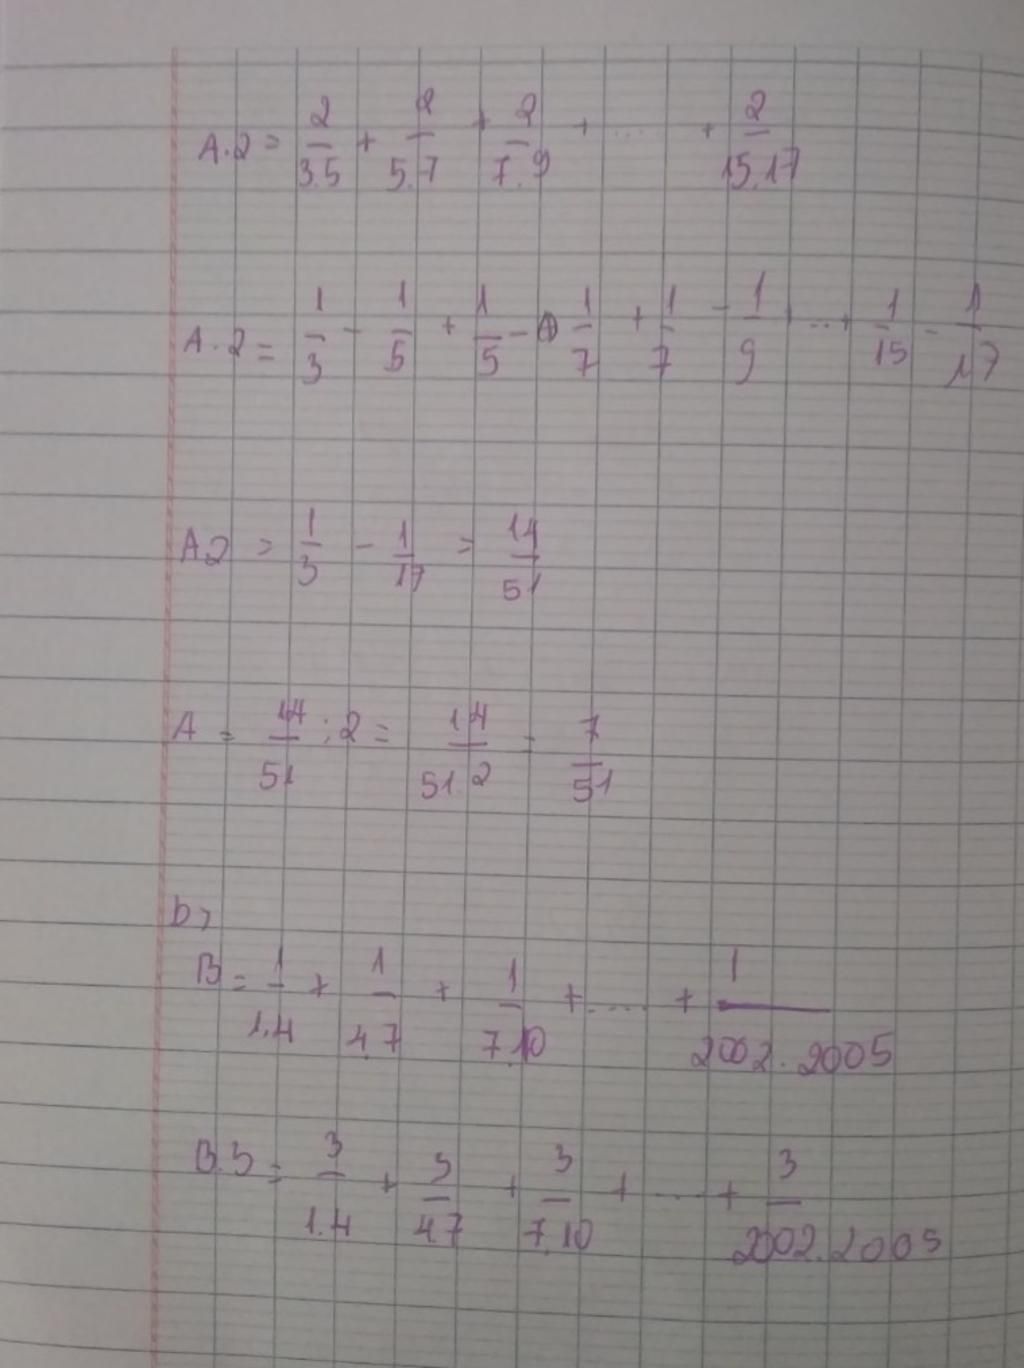 A.2 = 2/3.5 + 2/5.7 + 2/7.9 + ..... + 2/15.17
A.2 = 1/3 - 1/5 + 1/5 - 1/7 + 1/7 - 1/9 + ... + 1/15 - 1/17
A.2 = 1/3 - 1/17 = 14/51
A = 14/51 : 2 = 14/51.2 = 7/51
b,
B = 1/1.4 + 1/4.7 + 1/7.10 + ..... + 1/2002.2005
B.3 = 3/1.4 + 3/4.7 + 3/7.10 + ..... + 3/2002.2005